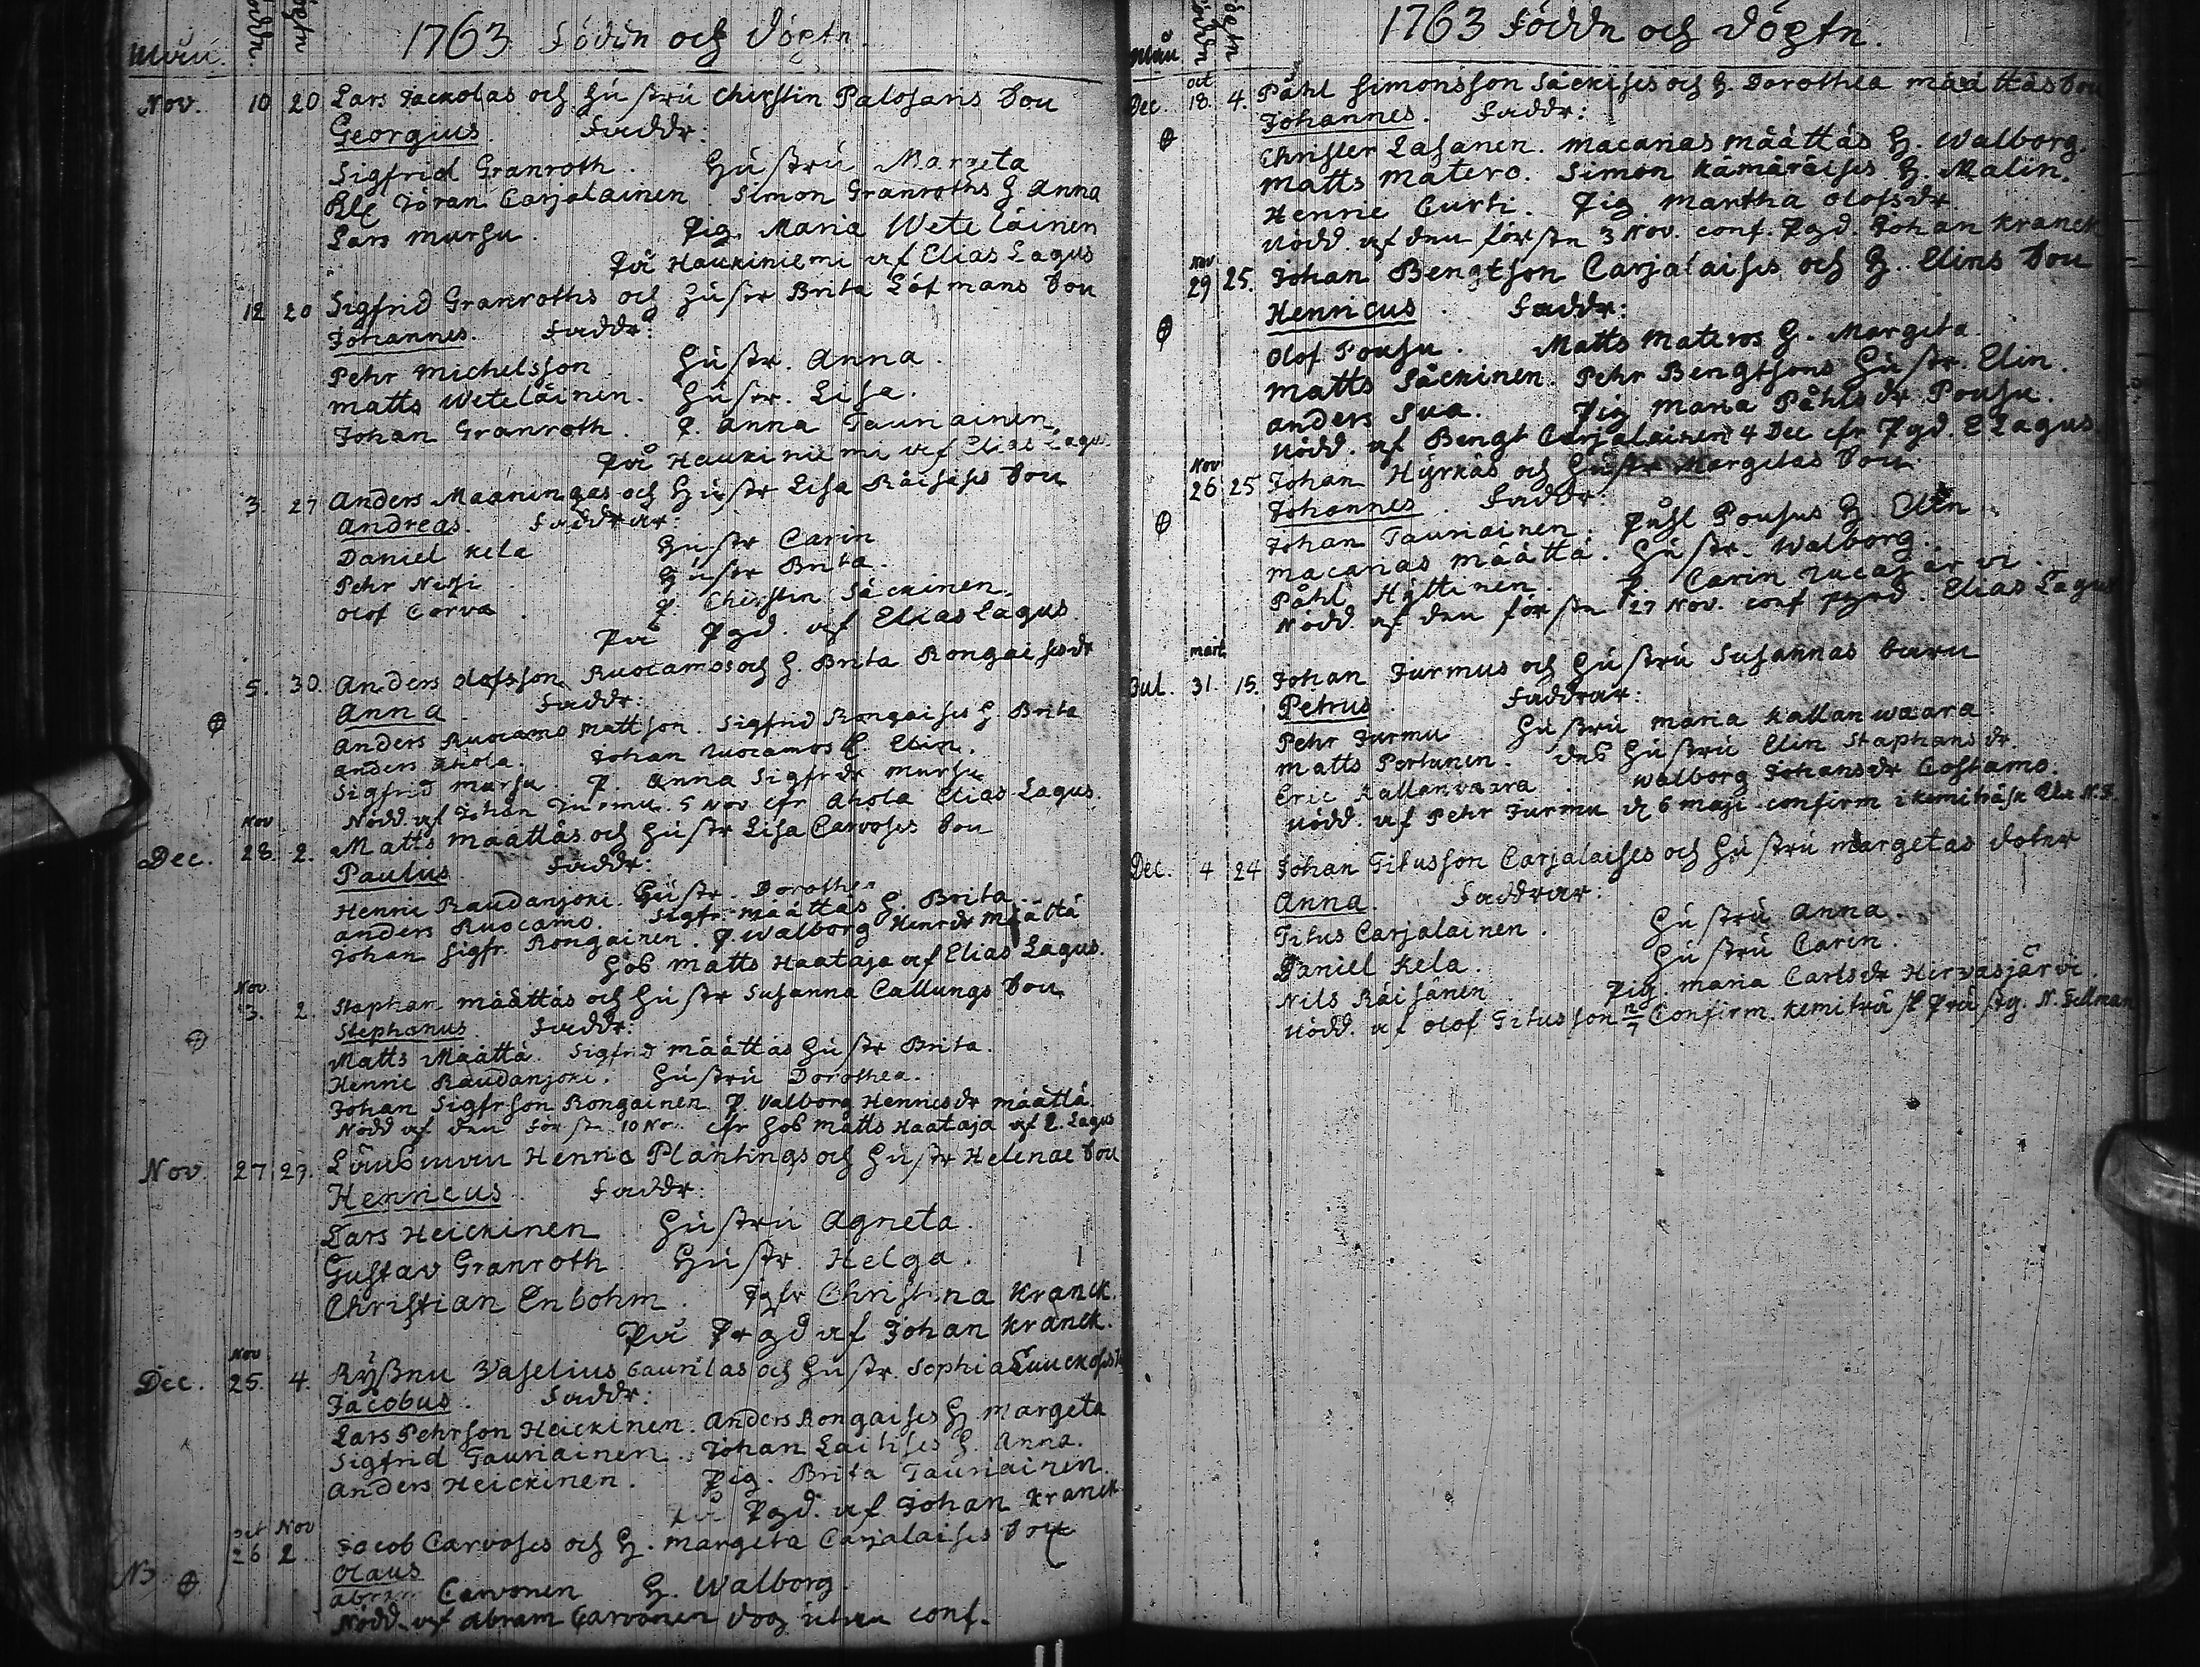 1763 Föddn och Döptn.
Mån.
Nov. 10 20 Lars Jackolas och Hustru Chirstin Palosaris Son
Georgius. Faddr:
Sigfrid Granroth. Hustru Margeta
Jöran Carjalainen Simon Granroths H Anna
Lars Mursu. Pig. Maria Weteläinen
På Haukiniemi af Elias Lagus
12 20 Sigfrid Granroths och Hustr Brita Löfmans Son
Johannes. Faddr:
Pehr Michelsson Hustr. Anna.
Matts Weteläinen. Hustr. Lisa.
Johan Granroth. P. Anna Tauriainen
På Haukiniemi af Elias Lagus
3. 27 Anders Maaningas och Hustr Lisa Räisises Son
Andreas. Faddrar:
Daniel Kela Hustr Carin
Pehr Hustr Brita.
Olof Corva. P. Chirstin Säckinen.
På Pgd. af Elias Lagus.
5. 30. Anders Olofsson Ruocamos och H. Brita Rongaises dr
Anna Faddr:
Anders Ruocamo Mattson. Sigfrid Rongaises H. Brita
Anders Ahola. Johan Ruocamos H. Elin.
Sigfrid Mursu. P. Anna Sigfr dr Mursu
Nödd. af Johan Jurmu. 5 Nov cfr Ahola Elias Lagus.
Nov
Dec. 28. 2. Matts Määttäs och Hustr Lisa Carvoses Son
Paulus Faddr:
Henric Raudanjoki. Hustr. Dorothea
Anders Ruocamo. Sigfr. Määttäs H. Brita.
Johan Sigfr. Rongainen. P. Walborg Henr dr Määttä
Hos Matts Haataja af Elias Lagus.
Nov
3. 2. Stephan Määttäs och Hustr Susanna Callungs Son
Stephanus Faddr:
Matts Määttä. Sigfrid Määttäs Hustr Brita.
Henric Raudanjoki. Hustru Dorothea.
Johan Sigfrson Rongainen P. Valborg Henrics dr Määttä.
Nödd af den förste 10 Nov. cfr Hos Matts Haataja af E. Lagus
Nov. 27 29. Länsman Henric Plantings och Hustr Helenae Son
Henricus. Faddr:
Lars Heickinen Hustru Agneta.
Gustav Granroth. Hustr. Helga.
Christian Enbohm. Jgfr Christina Kranck.
På Prgd af Johan Kranck.
Nov
Dec. 25. 4. Ryssen Vaselius Gaurilas och Hustr. Sophia
Jacobus. Faddr:
Lars Pehrson Heickinen. Anders Rongaises H Margeta
Sigfrid Tauriainen. Johan Laitises H. Anna.
Anders Heickinen. Pig. Brita Tauriainen.
På Pgd. af Johan Kranck
Oct Nov
26 2. Jacob Carvoses och H. Margeta Carjalaises Son
NB Olaus
Abram Carvonen H. Walborg.
Nödd. af Abram Carvonen dog utan conf.
1763 Föddn och Döptn.
Mån
Oct
Dec. 18. 4. Påhl Simonsson Säckises och H. Dorothea Määttäs Son
Johannes. Faddr:
Christer Lasanen. Macarias Määttäs H. Walborg.
Matts Matero. Simon Kämäräises H. Malin.
Henric Curti. Pig. Martha Olofsdr
Nödd. af den förste 3 Nov. conf. Pgd. Johan Kranck
Nov
29 25. Johan Bengtson Carjalaises och H. Elins Son
Henricus. Faddr:
Olof Pousu. Matts Materos H. Margeta
Matts Säckinen. Pehr Bengtsons Hustr. Elin.
Anders Sua. Pig Maria Påhlsdr Pousu.
Nödd. af Bengt Carjalainen 4 Dec cfr Pgd. E Lagus
Nov
26 25 Johan Hyrkäs och Hustr Margetas Son
Johannes. Faddr:
Johan Tauriainen. Påhl Pousus H. Elin
Macarias Määttä. Hustr. Walborg.
Påhl Hyttinen. P. Carin
Nödd af den förste 27 Nov. conf Pgrd. Elias Lagus
Mart.
Jul. 31. 15. Johan Jurmus och Hustru Susannas barn
Petrus Faddrar:
Pehr Jurmu Hustru Maria Kallanwaara
Matts Portunen. Des Hustru Elin Staphansdr.
Eric Kallanvaara. Walborg Johansdr Costamo.
Nödd. af Pehr Jurmu d 6 Maji confirm i Kemiträsk
Dec. 4 24 Johan Titusson Carjalaises och Hustru Margetas doter
Anna. Faddrar:
Titus Carjalainen. Hustru Anna.
Daniel Kela. Hustru Carin.
Nils Räisänen Pig Maria Carlsdr Hirvasjärvi.
Nödd. af Olof Titusson Confirm. Kemiträsk Prästg. N. Fellman